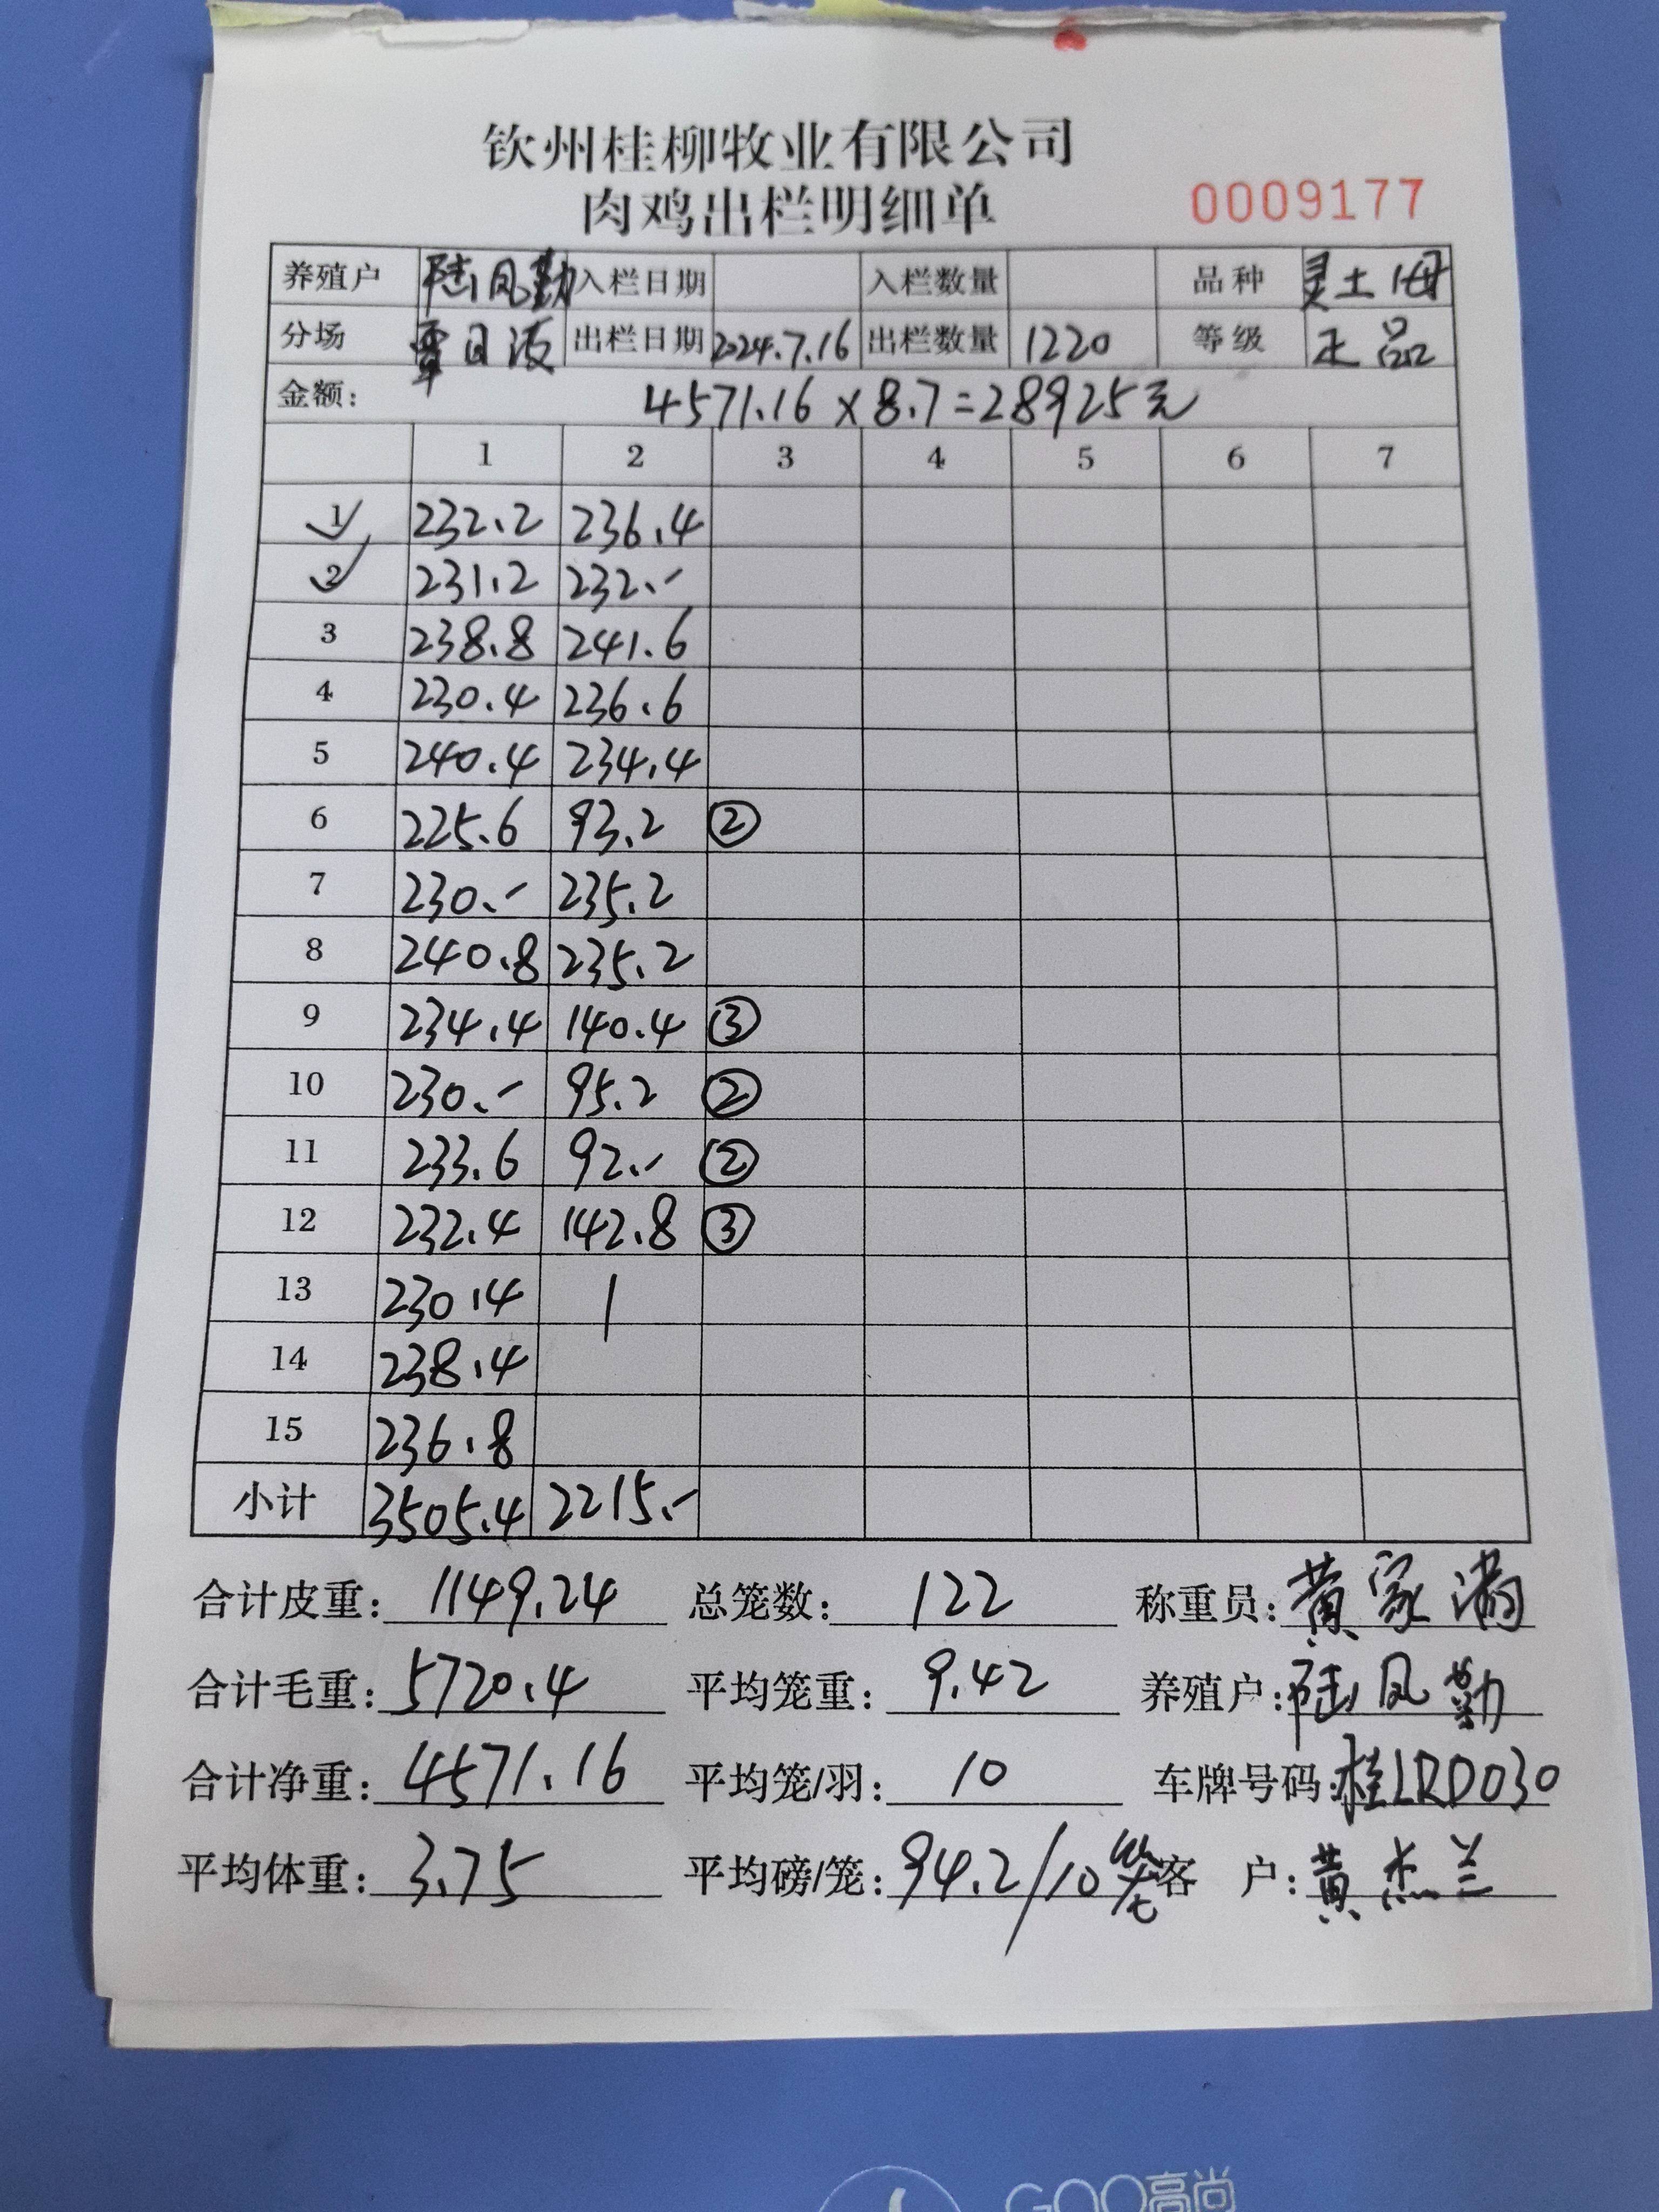 钦州桂柳牧业有限公司
肉鸡出栏明细单 0009177
养殖户 陆凤勤 入栏日期 入栏数量 品种 灵土母
分场 覃日波 出栏日期 2024.7.16 出栏数量 1220 等级 正品
金额: 4571.16×8.7=28925元
1 2 3 4 5 6 7
1 232.2 236.4
2 231.2 232.-
3 238.8 241.6
4 230.4 236.6
5 240.4 234.4
6 225.6 93.2 ②
7 230.- 235.2
8 240.8 235.2
9 234.4 140.4 ③
10 230.- 95.2 ②
11 233.6 92.- ②
12 232.4 142.8 ③
13 230.4
14 238.4
15 236.8
小计 3505.4 2215.-
合计皮重: 1149.24 总笼数: 122 称重员: 黄家满
合计毛重: 5720.4 平均笼重: 9.42 养殖户: 陆凤勤
合计净重: 4571.16 平均笼/羽: 10 车牌号码: 桂LRD030
平均体重: 3.75 平均磅/笼: 94.2/10笼 客 户: 黄杰兰
GOO高尚